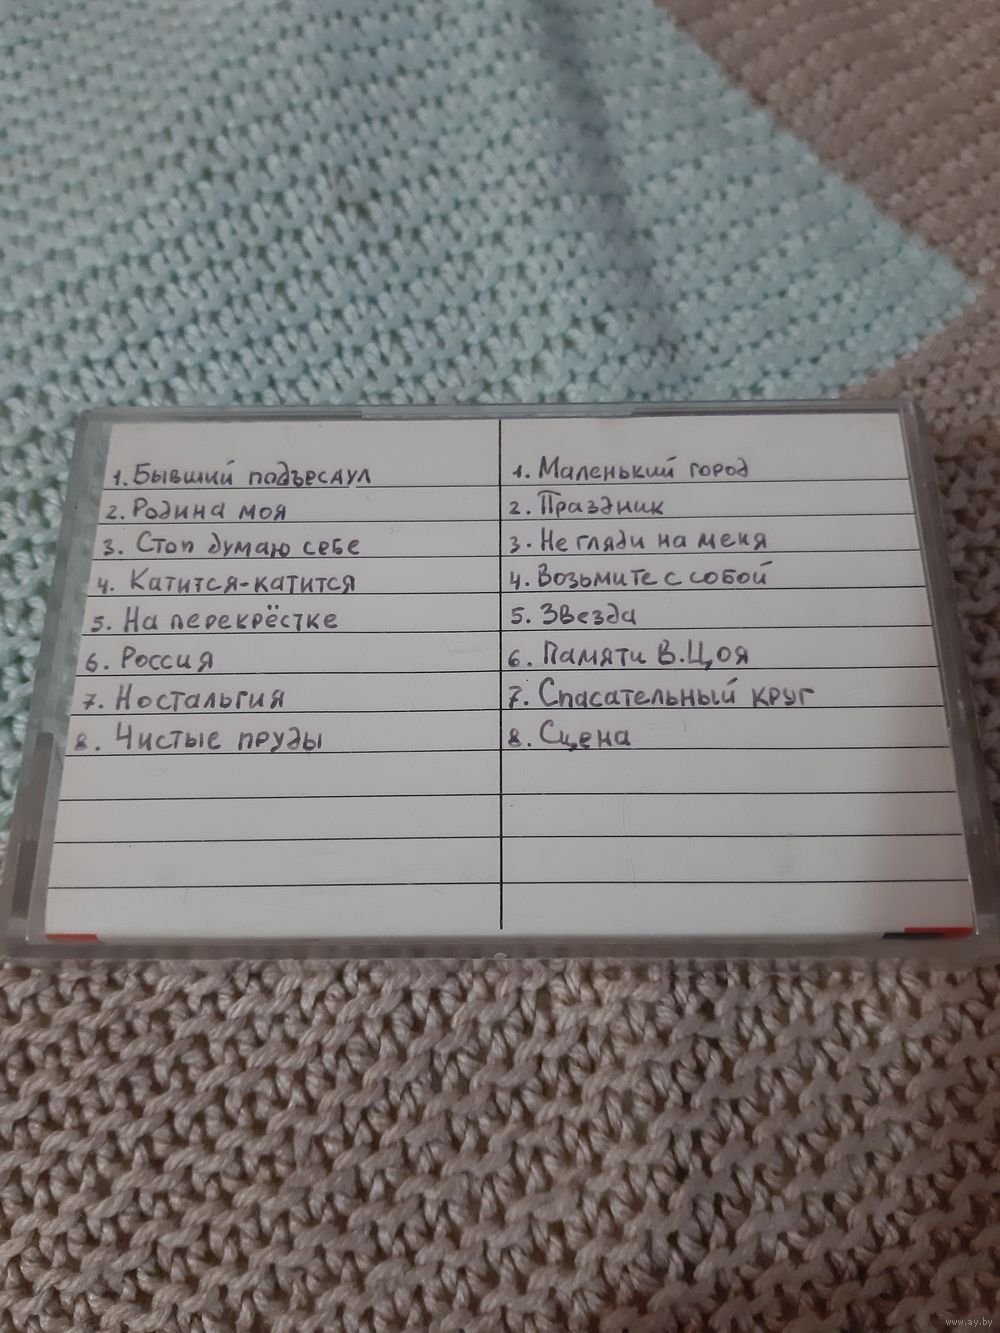 1. Бывший подъесаул
2. Родина моя
3. Стоп думаю себе
4. Катится-катится
5. На перекрёстке
6. Россия
7. Ностальгия
8. Чистые пруды
1. Маленький город
2. Праздник
3. Не гляди на меня
4. Возьмите с собой
5. Звезда
6. Памяти В.Цоя
7. Спасательный круг
8. Сцена
www.ay.by